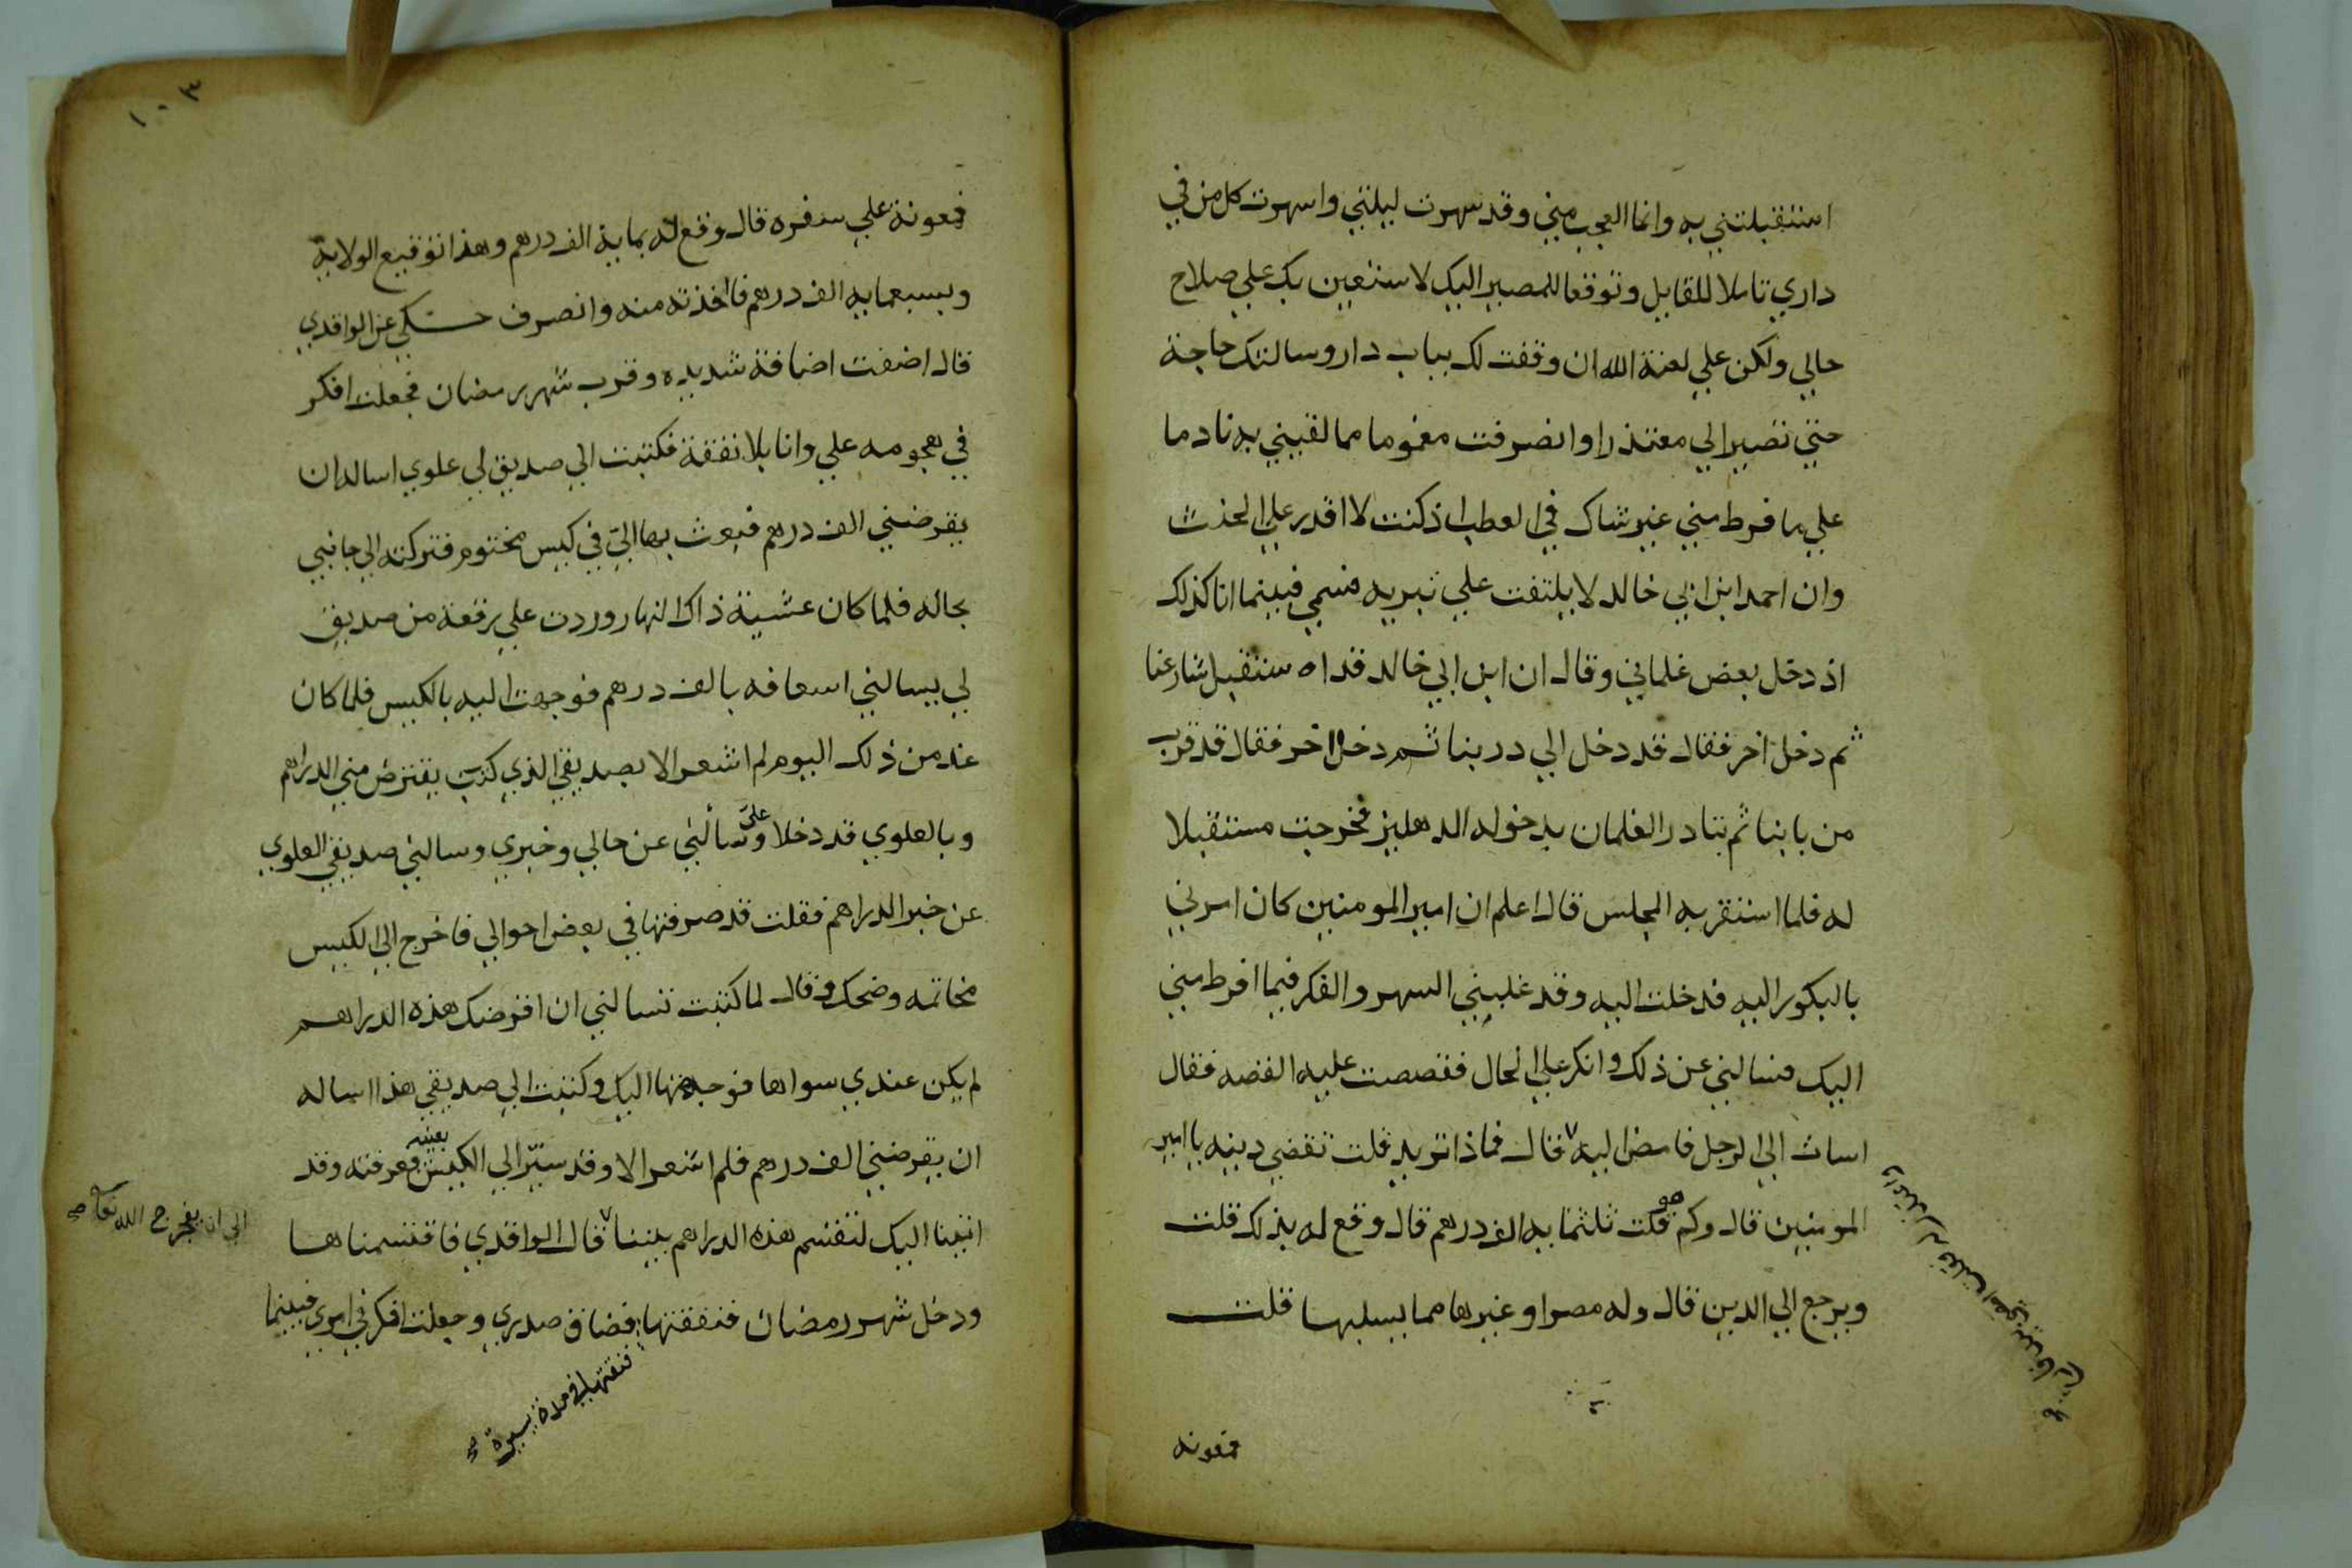 استقبلتني به وانما العجب مني وقد سهرت ليلتي واسهرت كل من في
داري تاملا للقايل وتوقعا للمصير اليك لاستعين بك علي صلاح
حالي ولكن علي لعنة الله ان وقفت لك بباب دار وسالتك حاجة
حتي تصير الي معتذرا وانصرفت مغموما مما لقيني به نادما
علي ما فرط مني غير شاك في العطب اذ كنت لا اقدر علي الحنث
وان احمد ابن ابي خالد لا يلتفت علي تبريه قسمي فبينما انا كذلك
اذ دخل بعض غلماني وقال ان ابن ابي خالد قد اه ستقبل شارعنا
ثم دخل اخر فقال قد دخل الي دربنا ثم دخل اخر فقال قد قرب
من بابنا ثم تبادر الغلمان بدخوله الدهليز فخرجت مستقبلا
له فلما استقر به المجلس قال اعلم ان امير المومنين كان امرني
بالبكور اليه فدخلت اليه وقد غلبني السهر والفكر فيما افرط مني
اليك فسالني عن ذلك وانكر علي الحال فقصصت عليه القصه فقال
اسات الي الرجل فامض اليه قال فماذا تريد قلت تقضي دينه يا امير
المومنين قال وكم هو قلت ثلثمايه الف درهم قال وقع له بذلك قلت
ويرجع الي الدين قال وله مصر او غيرها مما يسلبها قلت
فمعونه
١٠٣
فمعونة علي سفره قال وقع له بماية الف درهم وهذا توقيع الولاية
وبسبعمايه الف درهم فاخذته منه وانصرف حكي عن الواقدي
قال اضفت اضافة شديده وقرب شهر رمضان فجعلت افكر
في هجومه علي وانا بلا نفقة فكتبت الي صديق لي علوي اساله ان
يقرضني الف درهم فبعث بها الي في كيس مختوم فتركته الي جانبي
بحاله فلما كان عشية ذاك النهار وردت علي رقعة من صديق
لي يسالني اسعافه بالف درهم فوجهت اليه بالكيس فلما كان
غد من ذلك اليوم لم اشعر الا بصديقي الذي كتب يقترض مني الدراهم
وبالعلوي قد دخلا علي وسألني عن حالي وخبري وسالني صديقي العلوي
عن خبر الدراهم فقلت قد صرفتها في بعض احوالي فاخرج الي الكيس
بخاتمه وضحك وقال لما كتبت تسالني ان اقرضك هذه الدراهم
لم يكن عندي سواها فوجهتها اليك وكتبت الي صديقي هذا اساله
ان يقرضني الف درهم فلم اشعر الا وقد سيّر الي الكيس بعينه فعرفته وقد
اتينا اليك لنقتسم هذه الدراهم بيننا قال الواقدي فاقتسمناها
الي ان يفرج الله تعالي صح
ودخل شهر رمضان فنفقتها فضاق صدري وجعلت افكر في امري فبينما
فنفقتها في مدة يسيرة صح